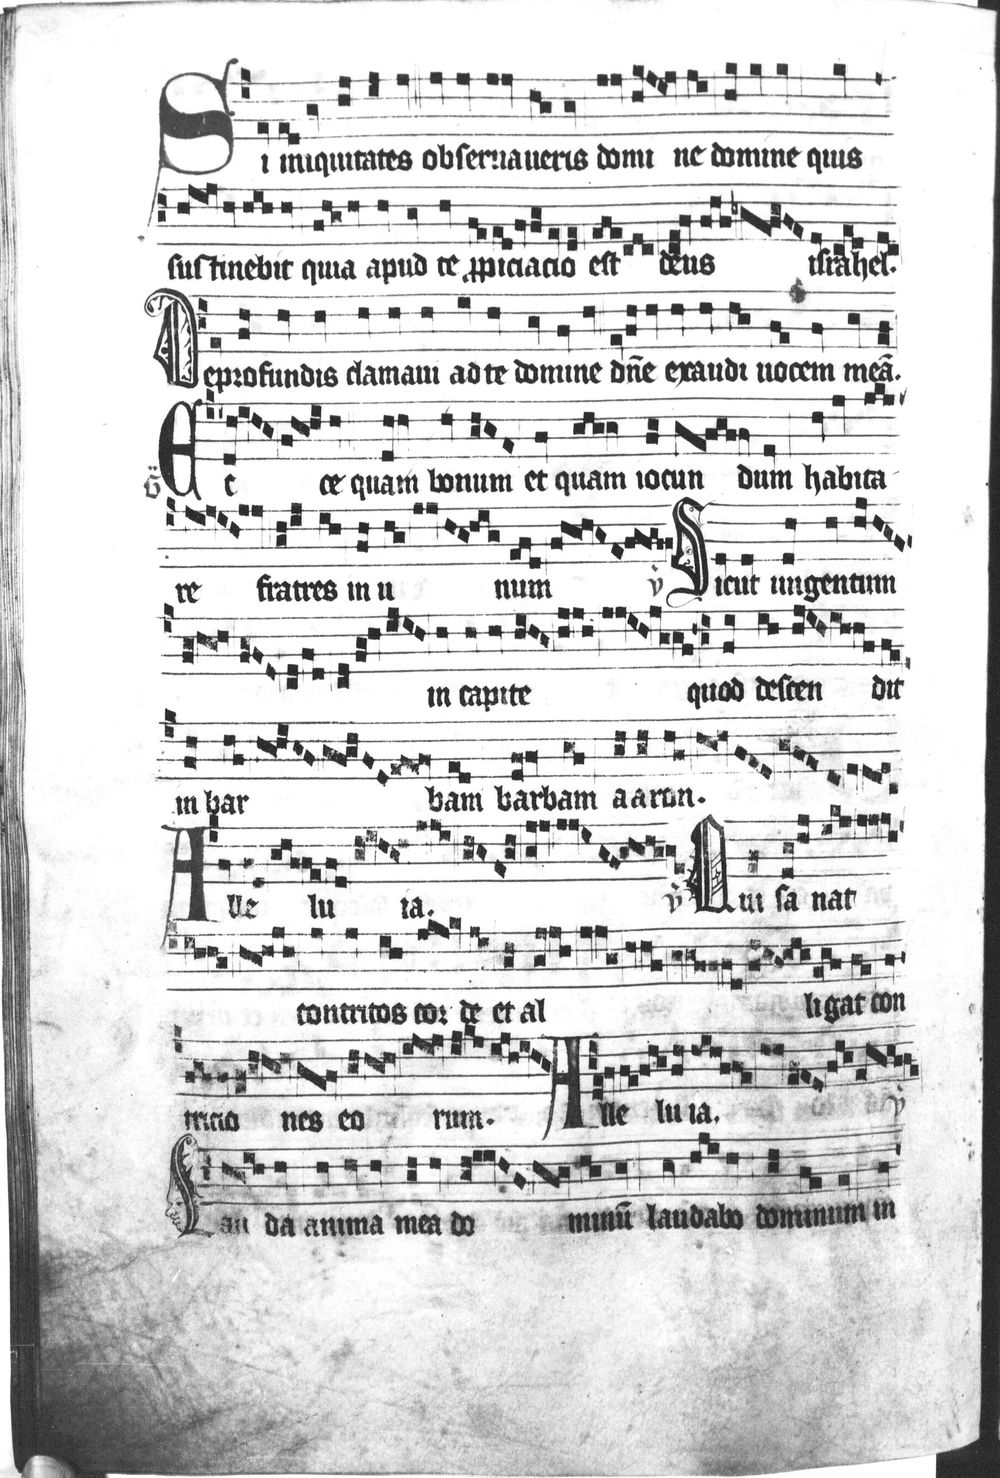 Si iniquitates obseruaueris domi ne domine quis
sustinebit quia apud te ꝓpiciacio est deus israhel.
De profundis clamaui ad te domine dn̄e exaudi uocem meā.
Gͬ Ec ce quam bonum et quam iocun dum habita
re fratres in u num ℣ Sicut ungentum
in capite quod descen dit
in bar bam barbam aaron.
Alle lu ia. ℣ Qui sa nat
contritos cor de et al ligat con
tricio nes eo rum. Alle lu ia. ℣
Lau da anima mea do minū laudabo dominum in